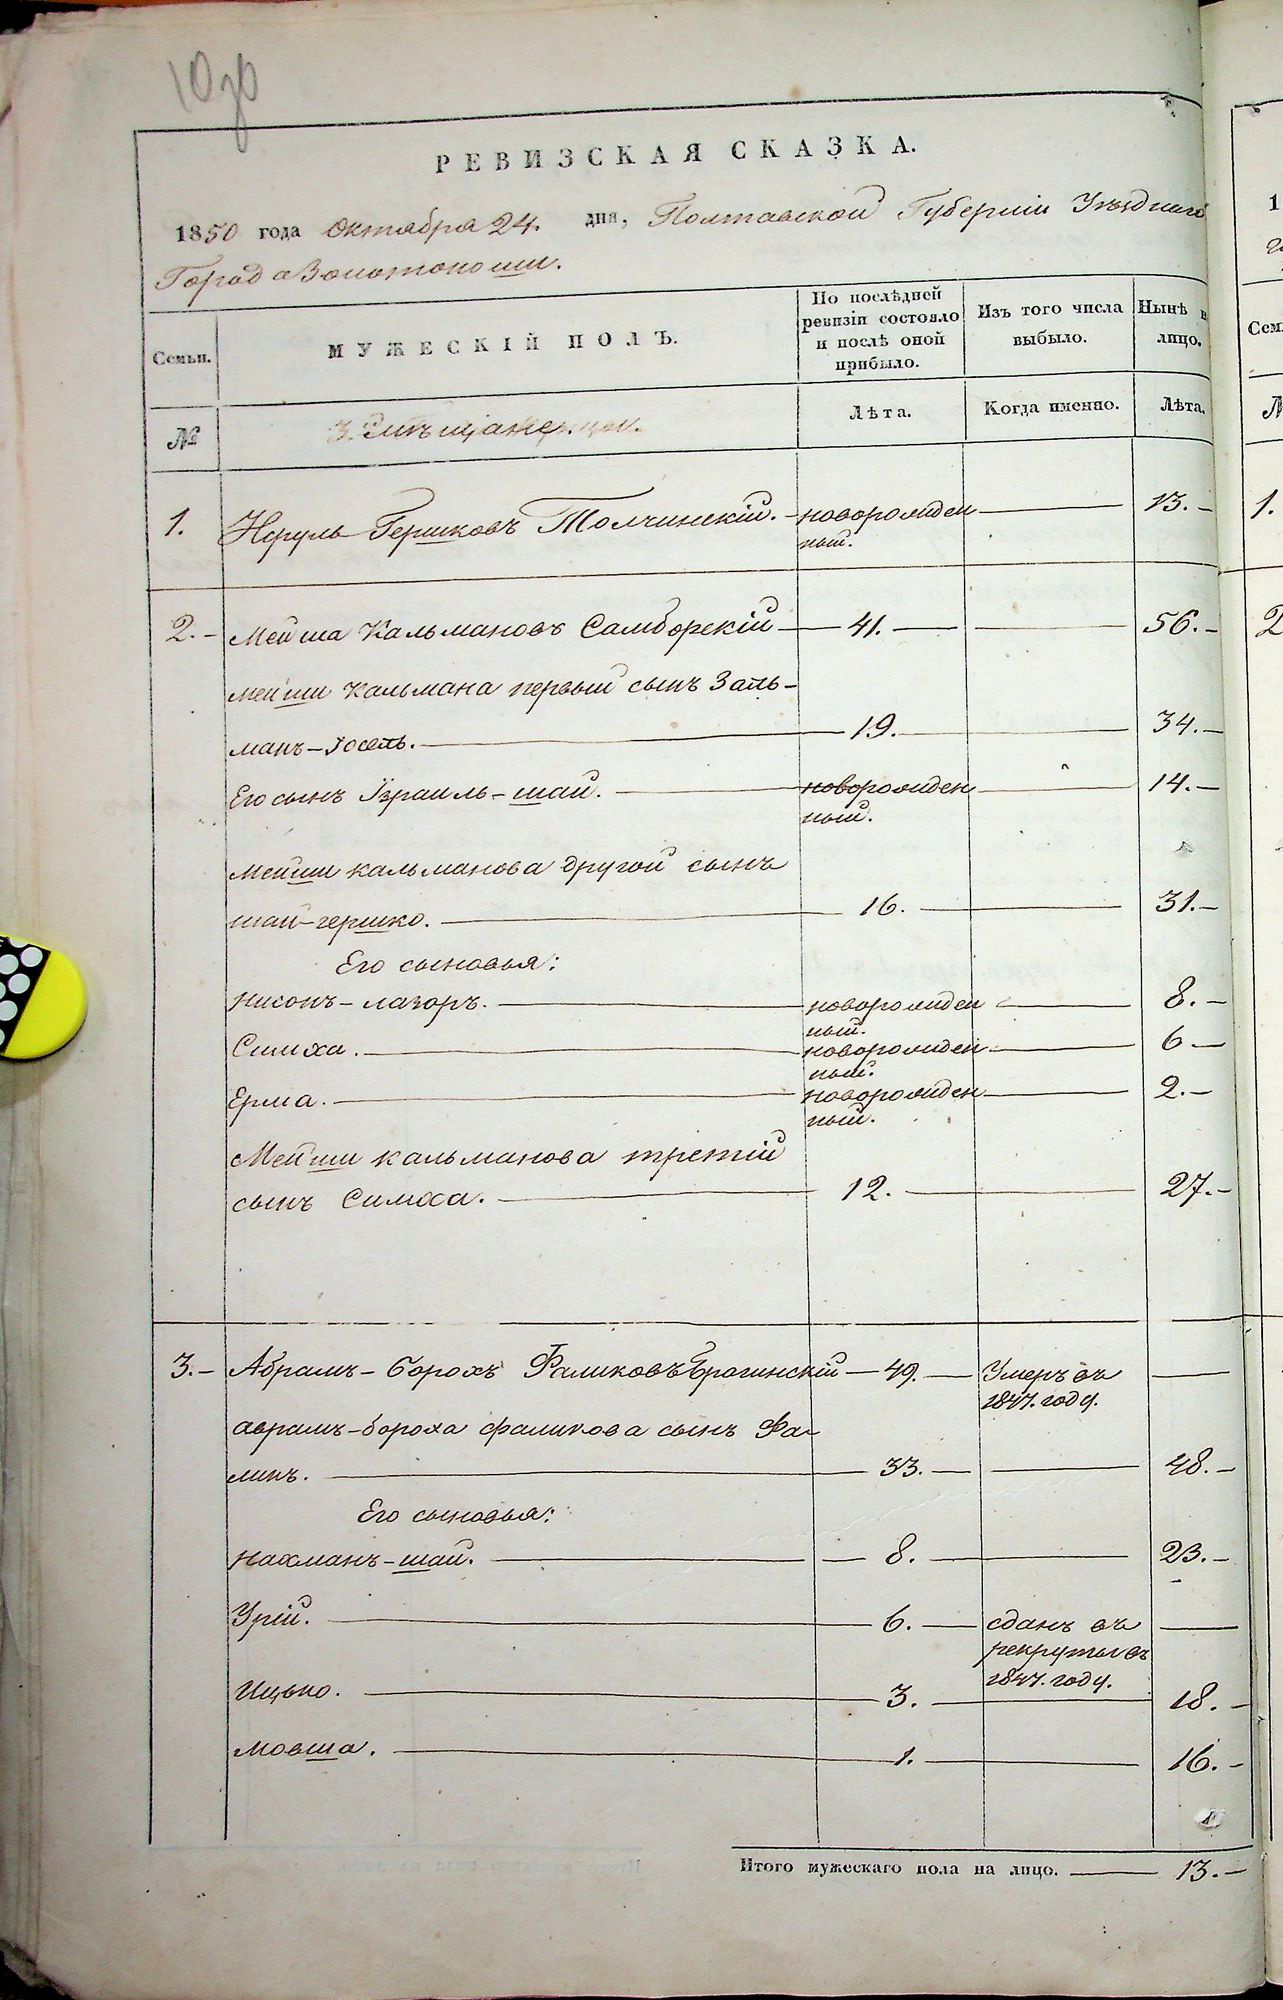 РЕВИЗСКАЯ СКАЗКА.
1850 года Октября 24. дня, Полтавской Губерніи Уѣзднаго
Города Золотоноши.
Семьи.
МУЖЕСКІЙ ПОЛЪ.
По послѣдней ревизіи состояло и послѣ оной прибыло.
Изъ того числа выбыло.
Нынѣ н лицо.
№
Лѣта.
Когда именно.
Лѣта.
1. Сруль Гершковъ Толчинскій. новорожден 13.
ный.
2. Мейша Кальмановъ Самборскій 41. 56.
Мейши Кальмана первый сынъ Заль-
манъ-Іосель. 19. 34.
Его сынъ Израиль-шай. новорожден 14.
ный.
Мейши кальманова другой сынъ
шай-гершко. 16. 31.
Его сыновья:
нисонъ-лазоръ. новорожден 8.
ный.
Симха. новорожден 6
ный.
Ерма. новорожден 2.
ный.
Мейши кальманова третій
сынъ Симха. 12. 27.
3. Абрамъ-Борохъ Фаликовъ Брагинскій 49. Умеръ въ
1847. году.
аврамъ-бороха фаликова сынъ Фа-
ликъ. 33. 48.
Его сыновья:
нахманъ-шай. 8. 23.
Урій. 6. сданъ въ
рекруты въ
1847. году.
Ицько. 3. 18.
мовша. 1. 16.
Итого мужескаго пола на лицо. 13.
1
Сем
№
1.
2